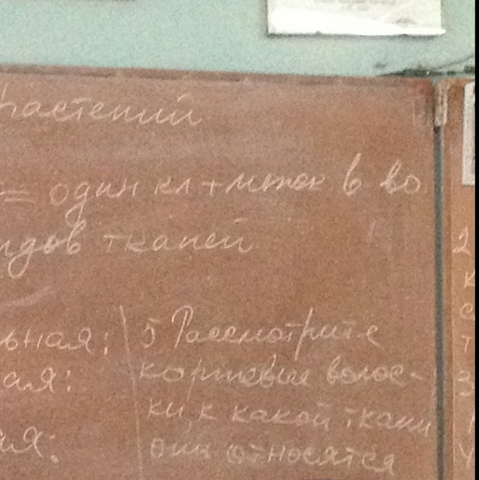 растений
= один кл + межк в во
идов тканей
ьная:
ая:
ая:
5 Рассмотрите
корневые волос-
ки, к какой ткани
они относятся
2
к
с
т
3